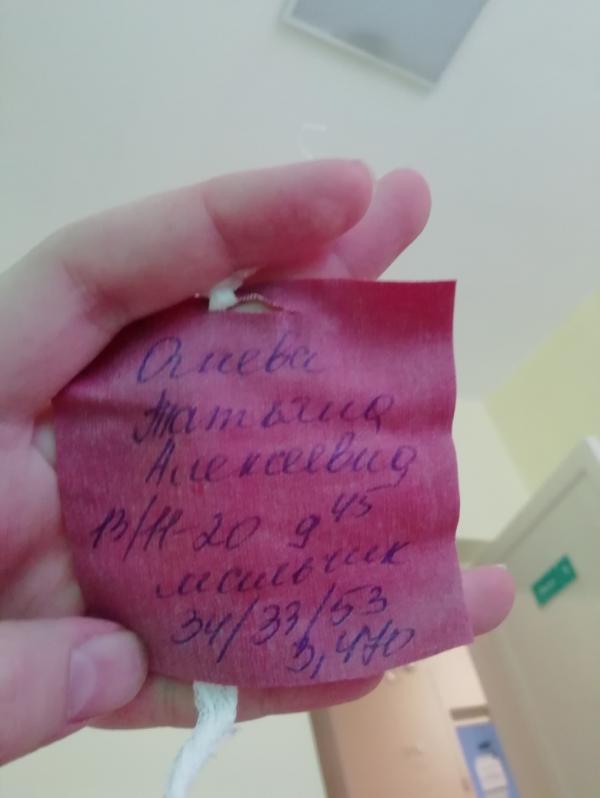 Татьяна
Алексеевна
13/11-20 9 45
мальчик
34/33/53
3,470